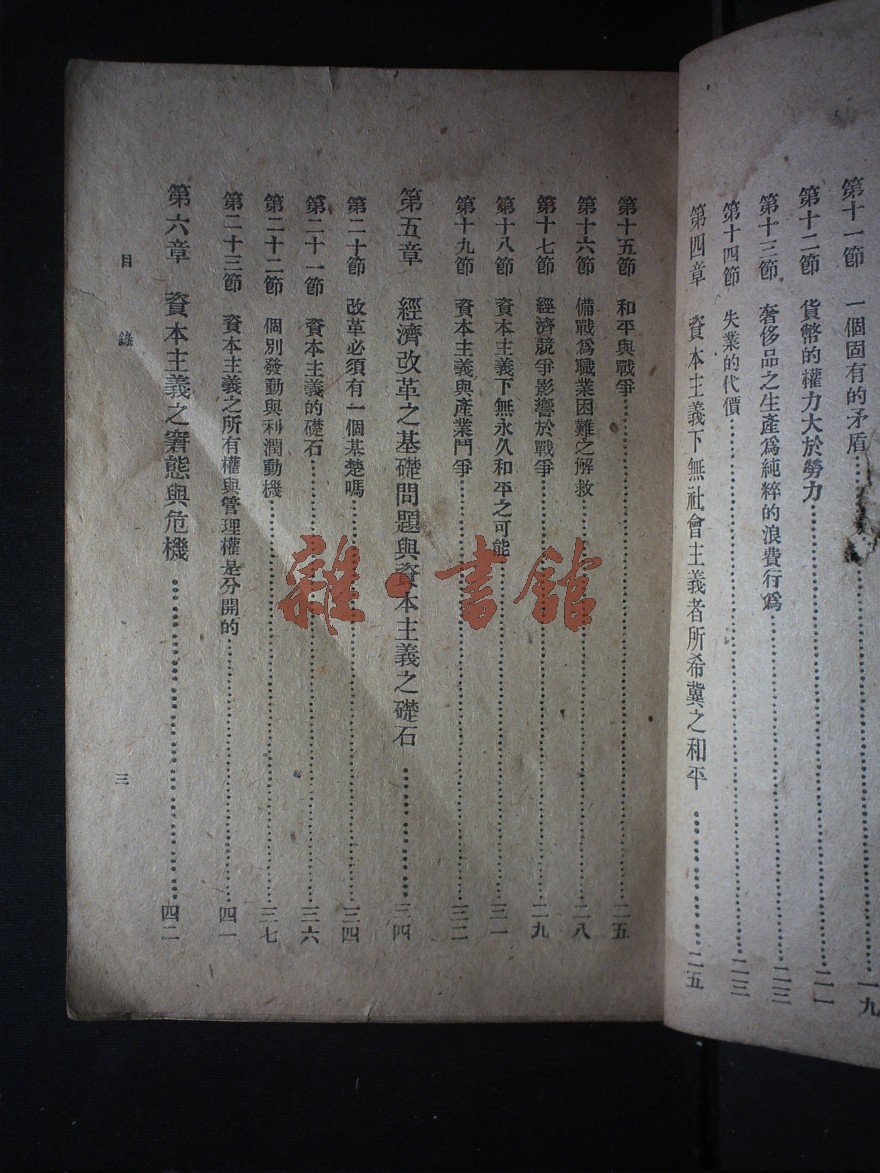 第十一節 一個固有的矛盾……一九
第十二節 貨幣的權力大於勞力……二一
第十三節 奢侈品之生產爲純粹的浪費行爲……二三
第十四節 失業的代價……二三
第四章 資本主義下無社會主義者所希冀之和平……二五
第十五節 和平與戰爭……二五
第十六節 備戰爲職業困難之解救……二八
第十七節 經濟競爭影響於戰爭……二九
第十八節 資本主義下無永久和平之可能……三一
第十九節 資本主義與產業鬥爭……三二
第五章 經濟改革之基礎問題與資本主義之礎石……三四
第二十節 改革必須有一個基楚嗎……三四
第二十一節 資本主義的礎石……三六
第二十二節 個別發動與利潤動機……三七
第二十三節 資本主義之所有權與管理權是分開的……四一
第六章 資本主義之窘態與危機……四二
目錄 三
雜·書館